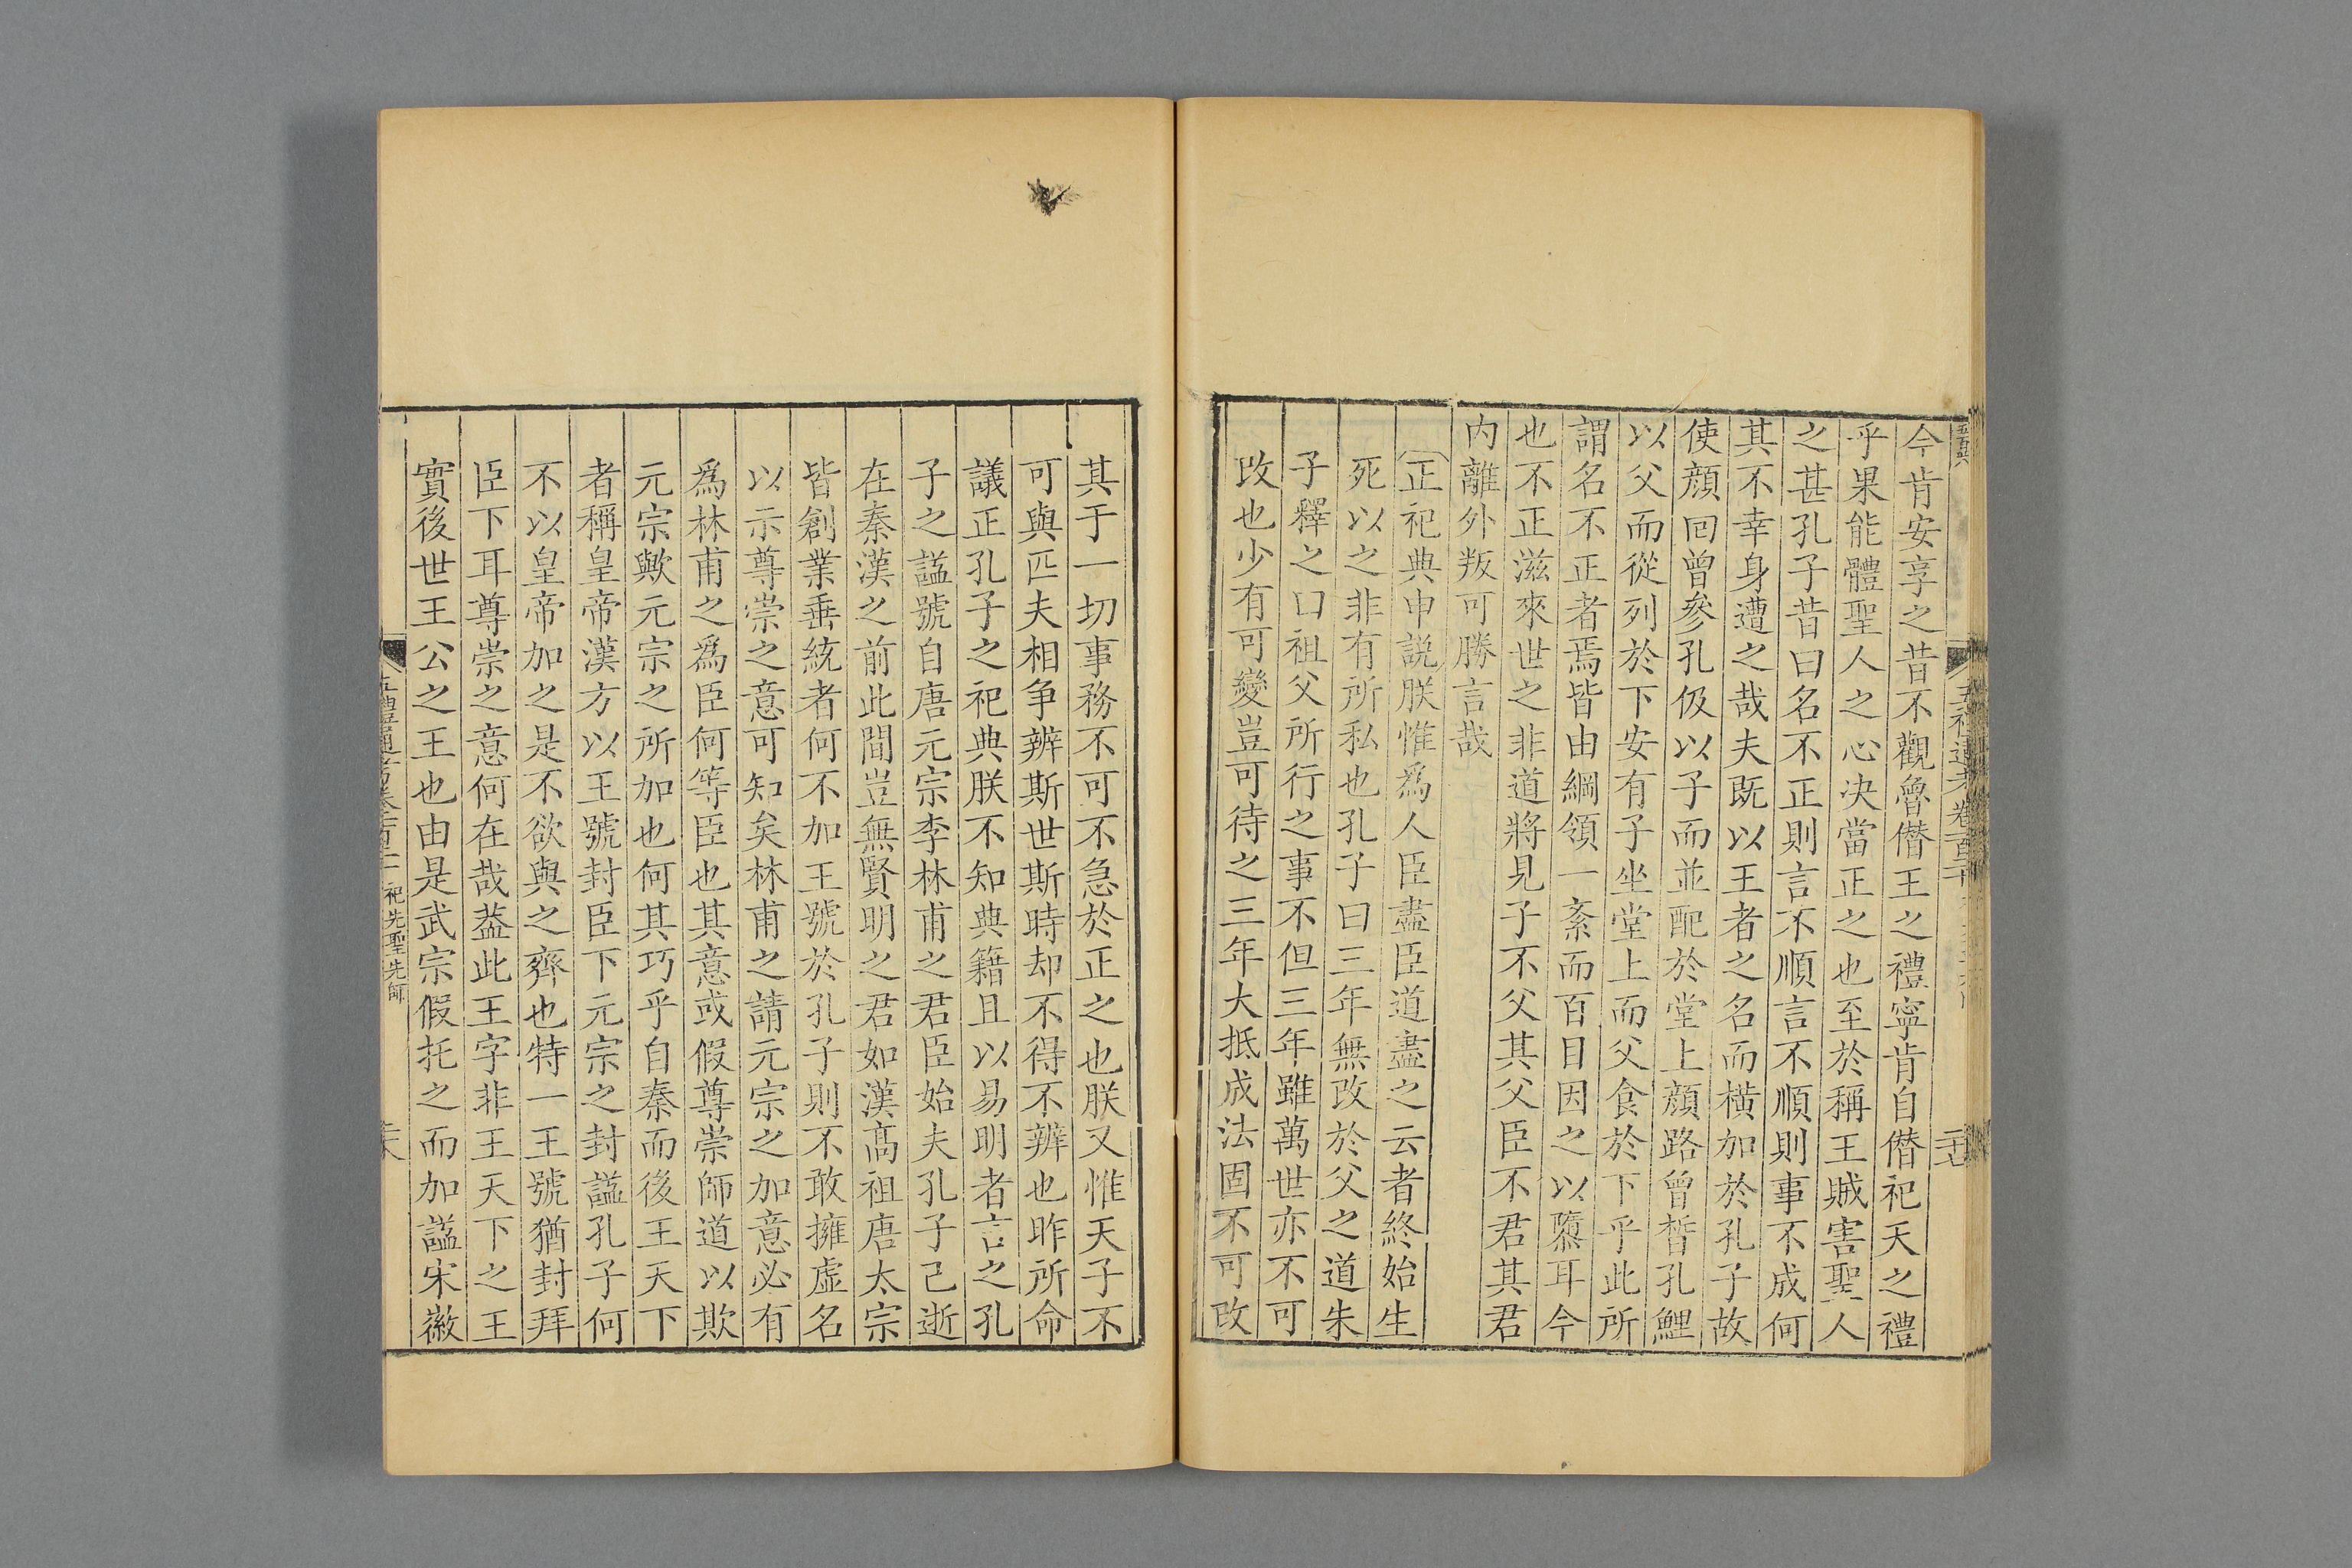 今肯安享之昔不觀魯僭王之禮寧肯自僭祀天之禮
乎果能體聖人之心決當正之也至於稱王賊害聖人
之甚孔子昔曰名不正則言不順言不順則事不成何
其不幸身遭之哉夫既以王者之名而橫加於孔子故
使顏回曾參孔伋以子而並配於堂上顏路曾晳孔鯉
以父而從列於下安有子坐堂上而父食於下乎此所
謂名不正者焉皆由綱領一紊而百目因之以隳耳今
也不正滋來世之非道將見子不父其父臣不君其君
内離外叛可勝言哉
正祀典申説朕惟爲人臣盡臣道盡之云者終始生
死以之非有所私也孔子曰三年無改於父之道朱
子釋之曰祖父所行之事不但三年雖萬世亦不可
改也少有可變豈可待之三年大抵成法固不可改
其于一切事務不可不急於正之也朕又惟天子不
可與匹夫相争辨斯世斯時却不得不辨也昨所命
議正孔子之祀典朕不知典籍且以易明者言之孔
子之諡號自唐元宗李林甫之君臣始夫孔子己逝
在秦漢之前此間豈無賢明之君如漢高祖唐太宗
皆創業垂統者何不加王號於孔子則不敢擁虛名
以示尊崇之意可知矣林甫之請元宗之加意必有
爲林甫之爲臣何等臣也其意或假尊崇師道以欺
元宗歟元宗之所加也何其巧乎自秦而後王天下
者稱皇帝漢方以王號封臣下元宗之封諡孔子何
不以皇帝加之是不欲與之齊也特一王號猶封拜
臣下耳尊崇之意何在哉葢此王字非王天下之王
實後世王公之王也由是武宗假托之而加諡宋徽
五禮通考卷一百二十 祀先聖先師